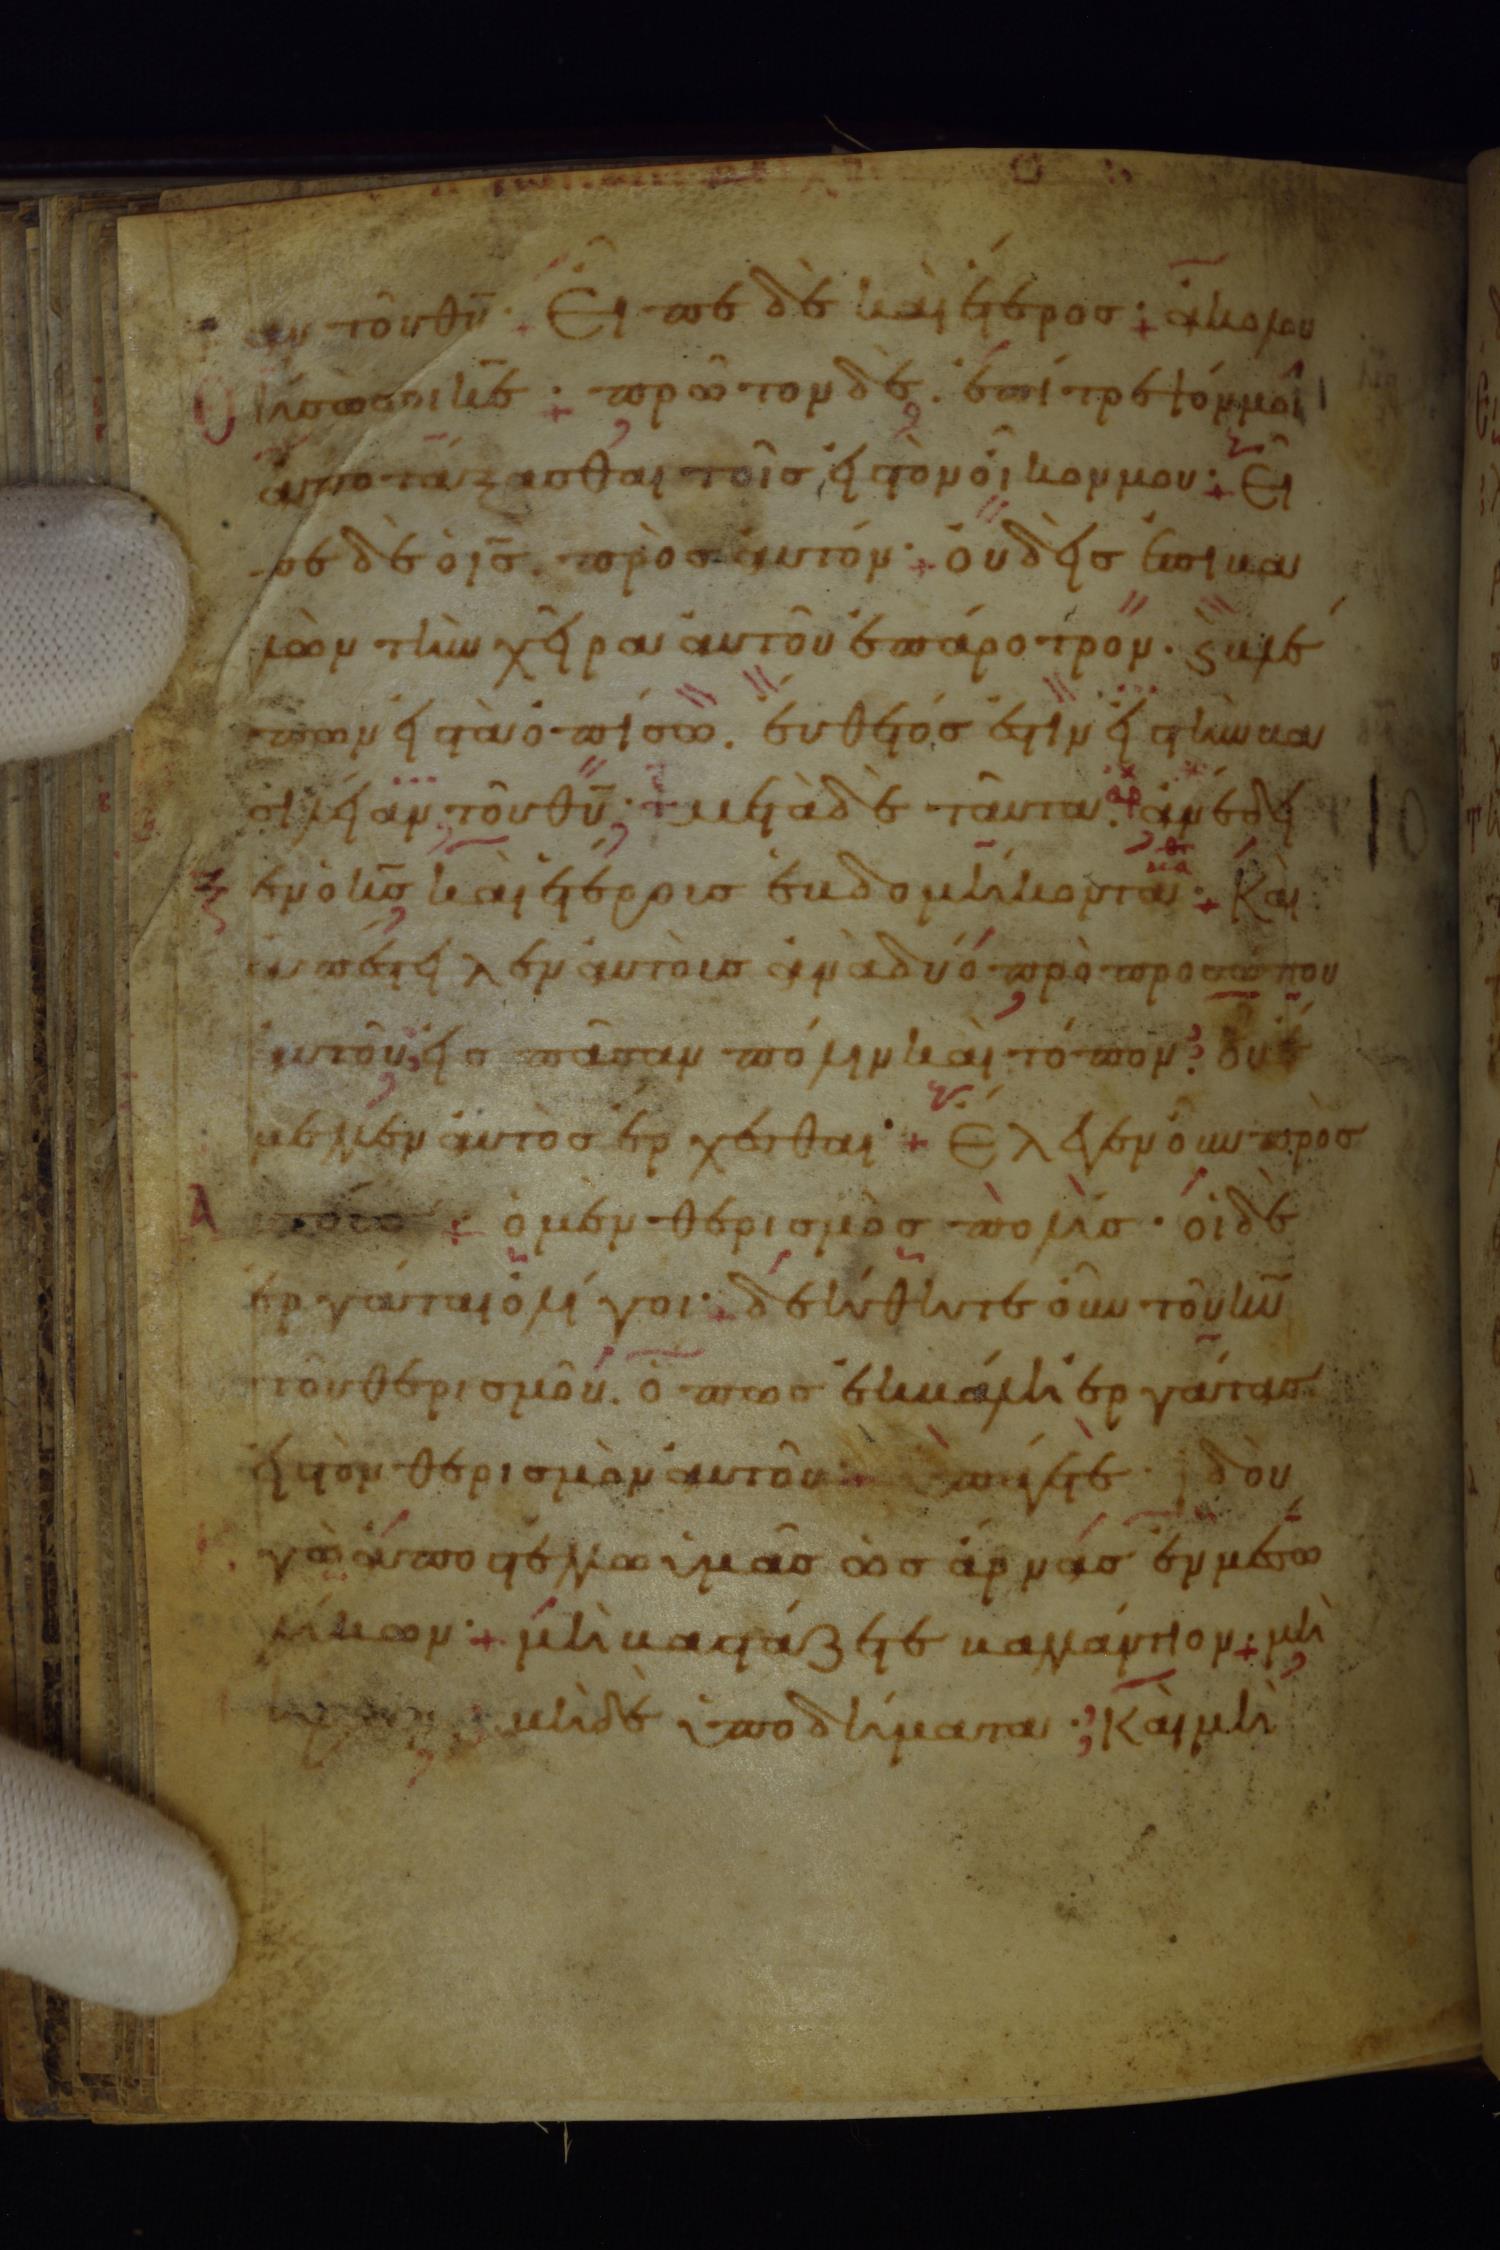 αν τοῦ θῦ· Εἶπε δὲ καὶ ἕτερος· ἀκολου
θήσω σοι κε· πρῶτον δὲ ἐπίτρεψόν μοι
ἀποτάξασθαι τοῖς εἰς τὸν οἶκον μου· Εἶ
πε δὲ ὁ ις πρὸς αὐτόν· οὐδεὶς ἐπιβα
λὼν τὴν χεῖρα αὐτοῦ ἐπ' ἄροτρον· ϗ βλέ
πων εἰς τὰ ὀπίσω· εὔθετός ἐστιν εἰς τὴν βα
σιλείαν τοῦ θῦ· μετὰ δὲ ταῦτα ἀνέδει
ξεν ὁ κς καὶ ἑτέρους ἑβδομήκοντα· Καὶ
ἀπέστειλεν αὐτοὺς ἀνὰ δύο πρὸ προσώπου
αὐτοῦ εἰς πᾶσαν πόλιν καὶ τόπον· οὗ ἔ
μελλεν αὐτὸς ἔρχεσθαι· Ἔλεγεν οὖν πρὸς
ὁ μὲν θερισμὸς πολύς· οἱ δὲ
ἐργάται ὀλίγοι· δεήθητε οὖν τοῦ κυ
τοῦ θερισμοῦ· ὅπως ἐκβάλη ἐργάτας
εἰς τὸν θερισμὸν αὐτοῦ· ὑπάγετε· ἰδοὺ
ἐγὼ ἀποστέλλω ὑμᾶς ὡς ἄρνας ἐν μέσω
λύκων· μὴ βαστάζετε βαλλάντιον· μὴ
μηδὲ ὑποδήματα· Καὶ μὴ